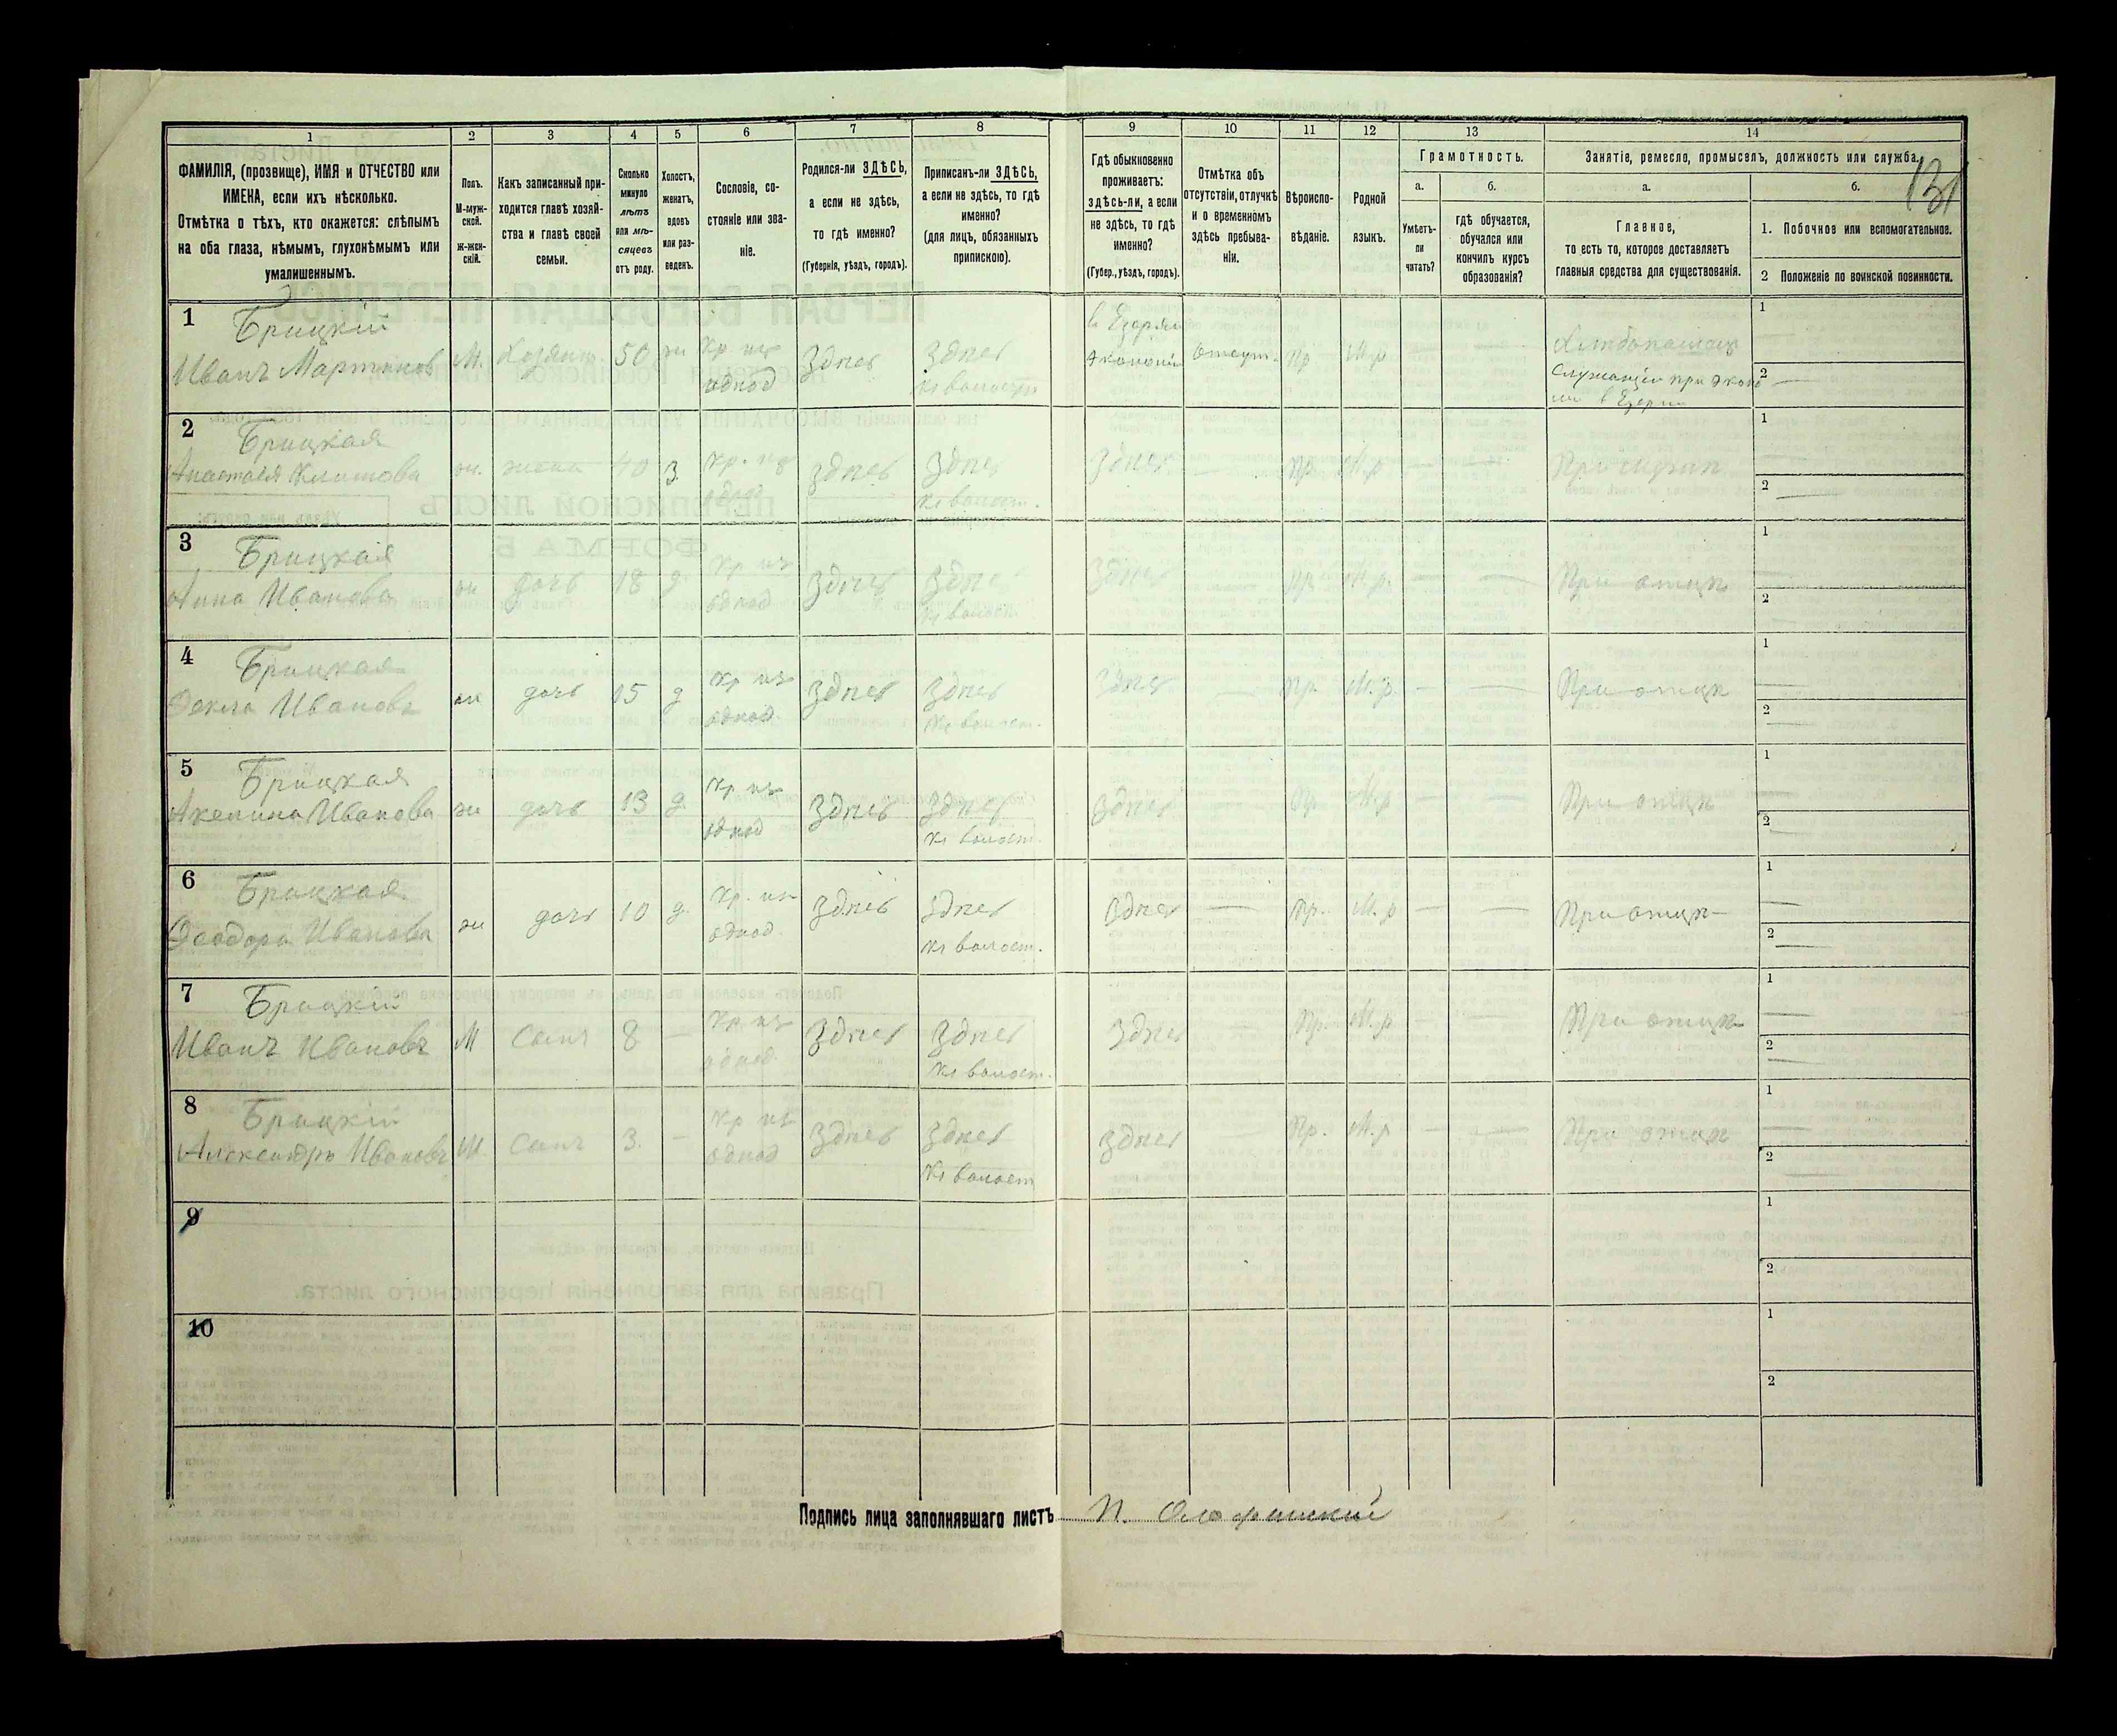 131
1 2 3 4 5 6 7 8 9 10 11 12 13 14
ФАМИЛІЯ, (прозвище), ИМЯ и ОТЧЕСТВО или
ИМЕНА, если ихъ нѣсколько.
Отмѣтка о тѣхъ, кто окажется: слѣпымъ
на оба глаза, нѣмымъ, глухонѣмымъ или
умалишеннымъ.
Полъ.
М-муж-
ской.
Ж-жен-
скій.
Какъ записанный при-
ходится главѣ хозяй-
ства и главѣ своей
семьи.
Сколько
минуло
лѣтъ
или мѣ-
сяцевъ
отъ роду.
Холостъ,
женатъ,
вдовъ
или раз-
веденъ.
Сословіе, со-
стояніе или зва-
ніе.
Родился-ли ЗДѢСЬ,
а если не здѣсь,
то гдѣ именно?
(Губернія, уѣздъ, городъ).
Приписанъ-ли ЗДѢСЬ,
а если не здѣсь, то гдѣ
именно?
(для лицъ, обязанныхъ
припискою).
Гдѣ обыкновенно
проживаетъ:
здѣсь-ли, а если
не здѣсь, то гдѣ
именно?
(Губер., уѣздъ, городъ).
Отмѣтка объ
отсутствіи, отлучкѣ
и о временномъ
здѣсь пребыва-
ніи.
Вѣроиспо-
вѣданіе.
Родной
языкъ.
Грамотность.
а.
Умѣетъ-
ли
читать?
б.
гдѣ обучается,
обучался или
кончилъ курсъ
образованія?
Занятіе, ремесло, промыселъ, должность или служба.
а.
Главное,
то есть то, которое доставляетъ
главныя средства для существованія.
б.
1. Побочное или вспомогательное.
2 Положеніе по воинской повинности.
1 Брицкій
Иванъ Мартиновъ М. Хозяинъ 50 жи Кр изъ однод Здѣсь Здѣсь въ Езерян Экономіи Отсут. Пр М.р Хлѣбопашецъ
Служащій при Экон
1
2
2 Брицкая
Анастасія Климова жи. жена 40 З. Кр. изъ Здѣсь Здѣсь Здѣсь — Пр. М.р — — При мужѣ
1
2
3 Брицкая
Анна Иванова жи дочь 18 д. Кр изъ однод Здѣсь Здѣсь Здѣсь Пр. М.р. — — При отцѣ
1
2
4 Брицкая
Фекла Иванова жи дочь 15 д Кр изъ однод Здѣсь Здѣсь Здѣсь Пр. М.р. — — При отцѣ
1
2
5 Брицкая
Акелина Иванова жи дочь 13 д. Кр изъ однод Здѣсь Здѣсь Здѣсь Пр М.р — — При отцѣ
1
2
6 Брицкая
Феодора Иванова жи дочь 10 д. Кр. изъ однод Здѣсь Здѣсь Здѣсь — Пр. М.р — — При отцѣ
1
2
7 Брицкій
Иванъ Ивановъ М Сынъ 8 — Кр изъ однод Здѣсь Здѣсь Здѣсь Пр. М.р — — При отцѣ
1
2
8 Брицкій
Александръ Ивановъ М Сынъ 3. — Кр изъ однод Здѣсь Здѣсь Здѣсь Пр. М.р — — При отцѣ
1
2
9
1
2
10
1
2
Подпись лица заполнявшаго листъ